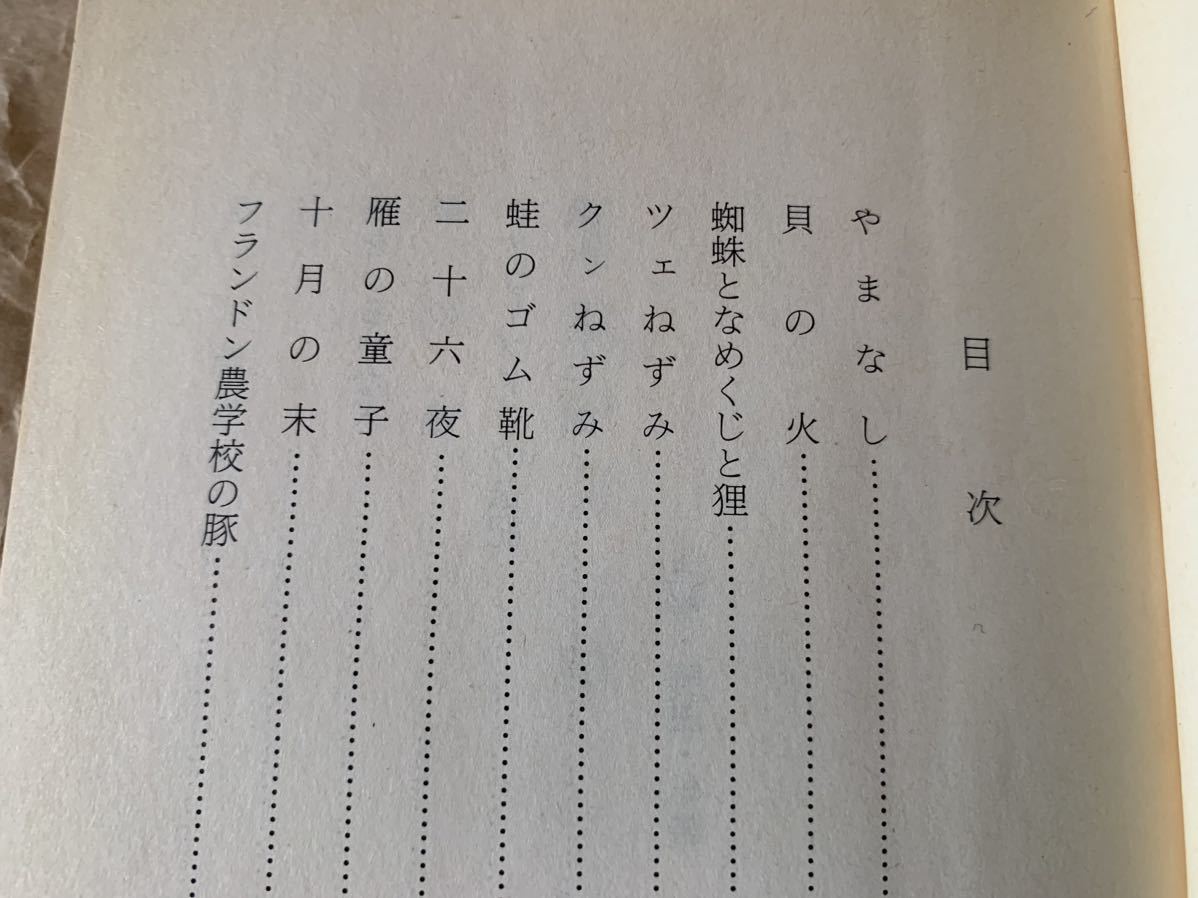 目次
やまなし
貝の火
蜘蛛となめくじと狸
ツェねずみ
クンねずみ
蛙のゴム靴
二十六夜
雁の童子
十月の末
フランドン農学校の豚